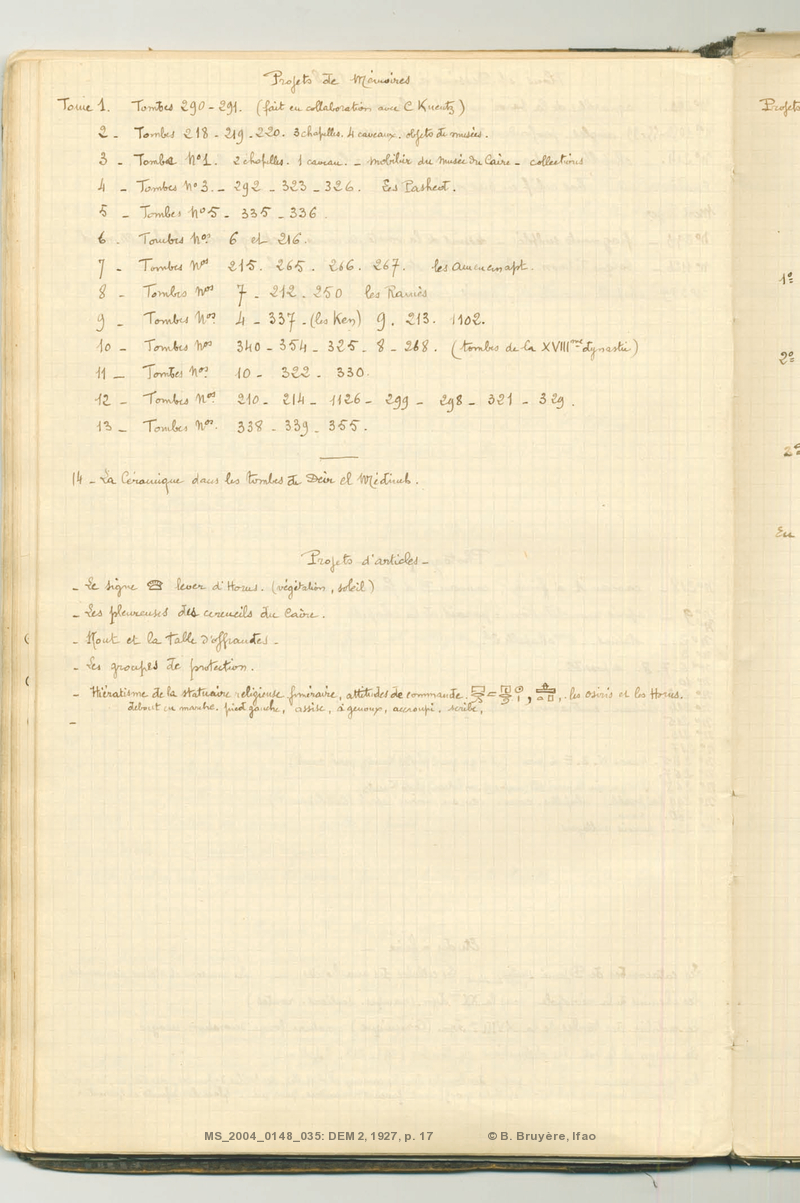 Projets de Mémoires
Tome 1. Tombes 290 - 291. (fait en collaboration avec C. Kuentz)
2 - Tombes 218 - 219 - 220. 3 chapelles. 4 caveaux. objets de musées.
3 - Tombe N° 1. 2 chapelles. 1 caveau. - mobilier du musée du Caire - collections
4 - Tombes N° 3. - 292 - 323 - 326. Les Pashed.
5 - Tombes N° 5 - 335 - 336
6. Tombes Nos 6 et 216.
7 - Tombes Nos 215. 265. 266. 267. les Amenemapt.
8 - Tombes Nos 7 - 212 - 250 les Ramès
9 - Tombes Nos 4 - 337 - (les Ken) 9. 213. 1102.
10 - Tombes Nos 340 - 354 - 325 - 8 - 268. (tombes de la XVIIIme dynastie)
11 - Tombes Nos 10 - 322 - 330.
12 - Tombes Nos 210 - 214 - 1126 - 299 - 298 - 321 - 329.
13 - Tombes Nos. 338 - 339 - 355.
14 - La Céramique dans les tombes de Deir el Médineh.
Projets d'articles -
- Le signe lever d'Horus. (végétation, soleil)
- Les pleureuses des cercueils du Caire.
- Nout et la table d'offrandes -
- Les groupes de protection.
- Hiératisme de la statuaire religieuse funéraire, attitudes de commande. = , , . les Osiris et les Horus.
debout en marche. pied gauche, assise, à genoux, accroupi, scribe,
-
Projets
1º
2º
2º
En
MS_2004_0148_035: DEM 2, 1927, p. 17 © B. Bruyère, Ifao